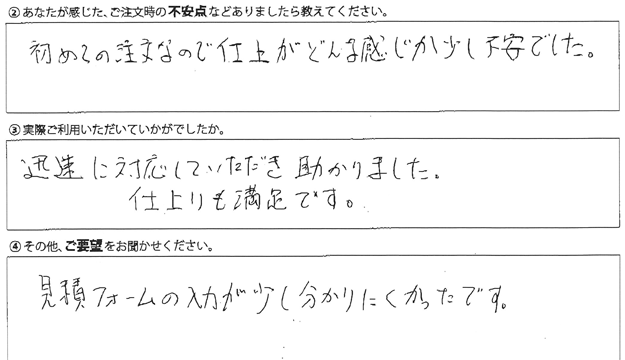 ②あなたが感じた、ご注文時の不安点などありましたら教えてください。
初めての注文なので仕上がどんな感じか少し不安でした。
③実際ご利用いただいていかがでしたか。
迅速に対応していただき助かりました。
仕上りも満足です。
④その他、ご要望をお聞かせください。
見積フォームの入力が少し分かりにくかったです。